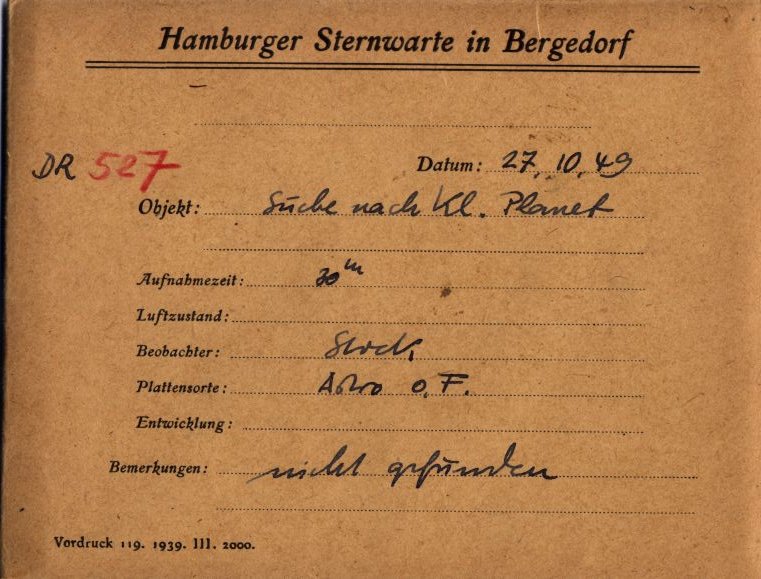 Hamburger Sternwarte in Bergedorf
DR 527 Datum: 27. 10. 49
Objekt: Suche nach Kl. Planet
Aufnahmezeit: 30m
Luftzustand:
Beobachter: Stock
Plattensorte: Astro o. F.
Entwicklung:
Bemerkungen: nicht gefunden
Vordruck 119. 1939. III. 2000.